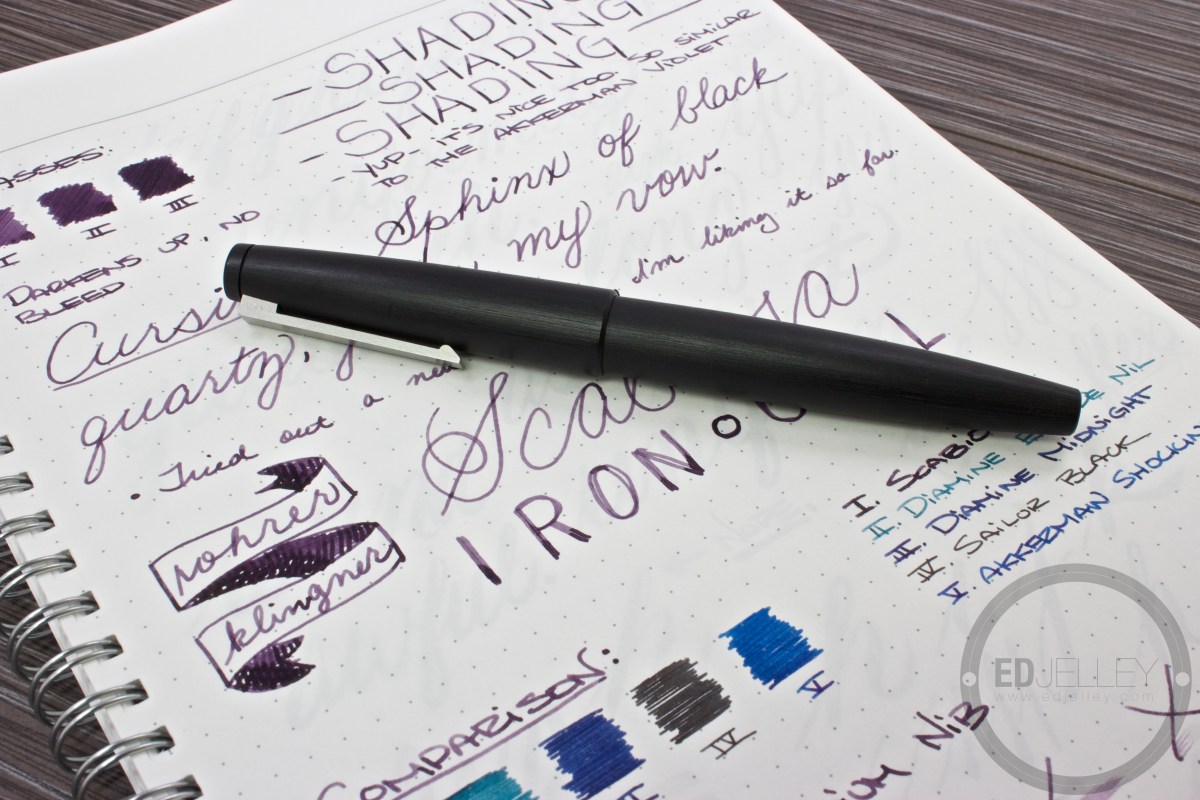 - SHADING
- SHADING
- SHADING
- YUP- IT'S NICE TOO. SO SIMILAR
TO THE AKKERMAN VIOLET
ASSES:
I
II
III
DARKENS UP, NO
BLEED
Sphinx of black
my vow.
I'm liking it so far.
Cursi
quartz,
• Tried out a new
rohrer
klingner
IRON.
I. SCABIO
II. DIAMINE E DE NIL
III. DIAMINE MIDNIGHT
IV SAILOR BLACK
V AKKERMAN SHOCKIN
COMPARISON:
IV
V
NIB
EDJELLEY
www.edjelley.com